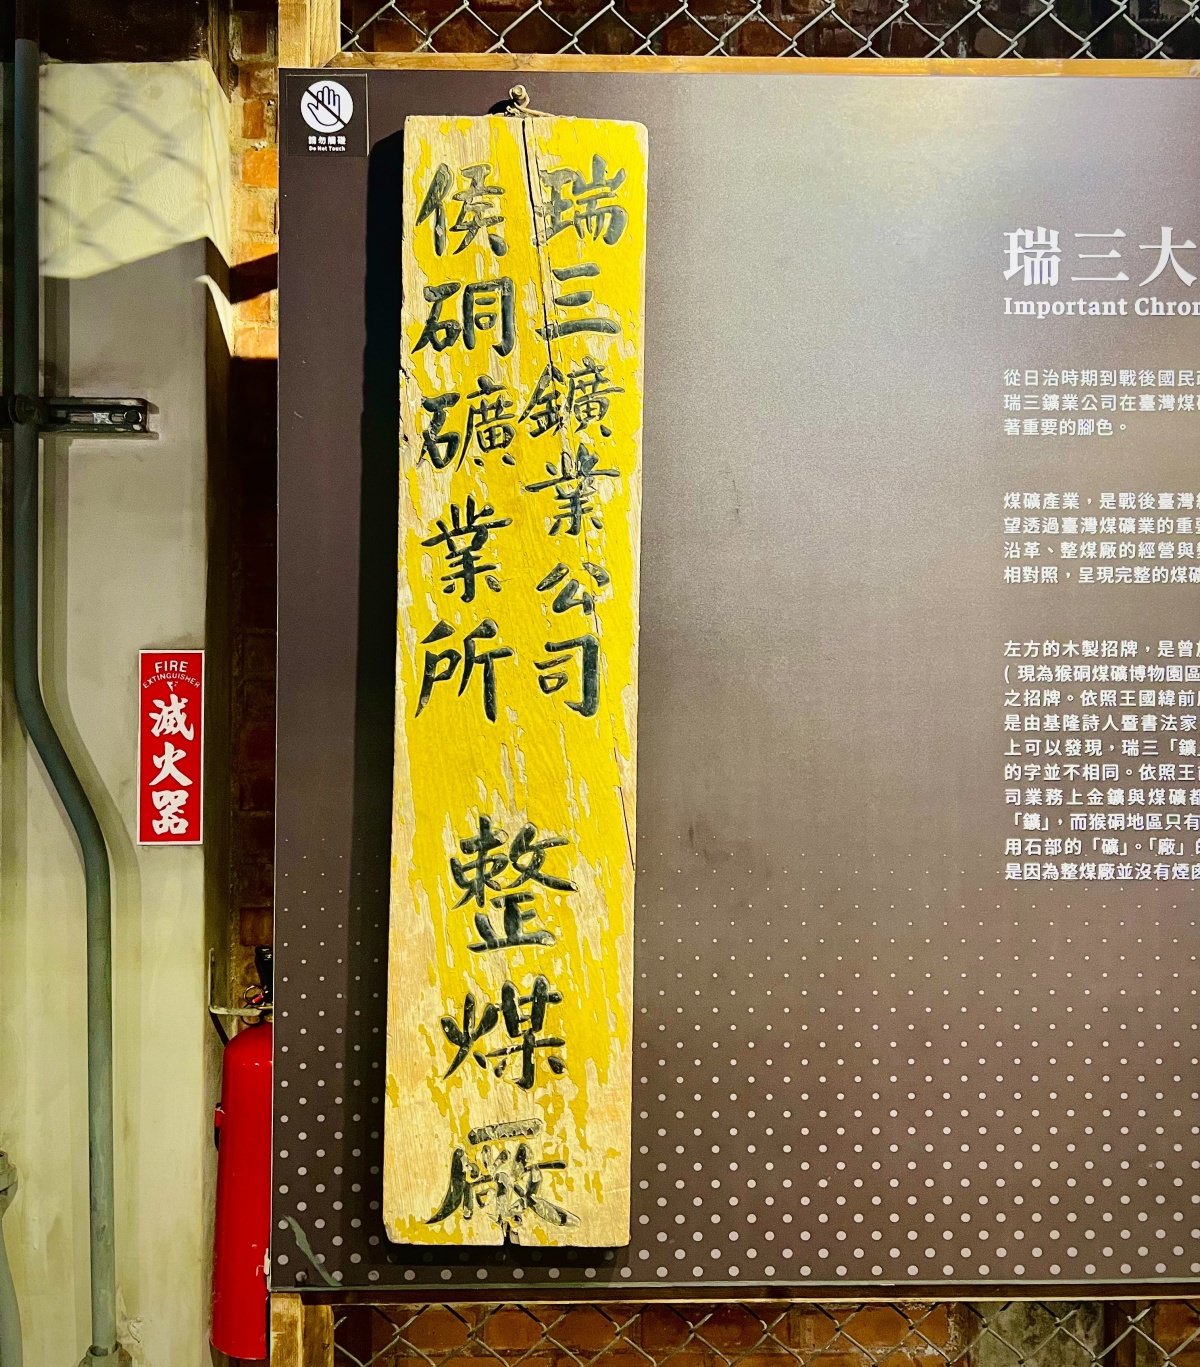 請勿觸碰
Do Not Touch
瑞三鑛業公司
侯硐礦業所
整煤廠
FIRE
EXTINGUISHER
滅火器
瑞三大
Important Chron
從日治時期到戰後國民
瑞三鑛業公司在臺灣煤
著重要的腳色。
煤礦產業，是戰後臺灣
望透過臺灣煤礦業的重
沿革、整煤厰的經營與
相對照，呈現完整的煤礦
左方的木製招牌，是曾
( 現為猴硐煤礦博物園區
之招牌。依照王國緯前
是由基隆詩人暨書法家
上可以發現，瑞三「鑛」
的字並不相同。依照王
司業務上金鑛與煤礦都
「鑛」，而猴硐地區只有
用石部的「礦」。「廠」的
是因為整煤厰並沒有煙囪